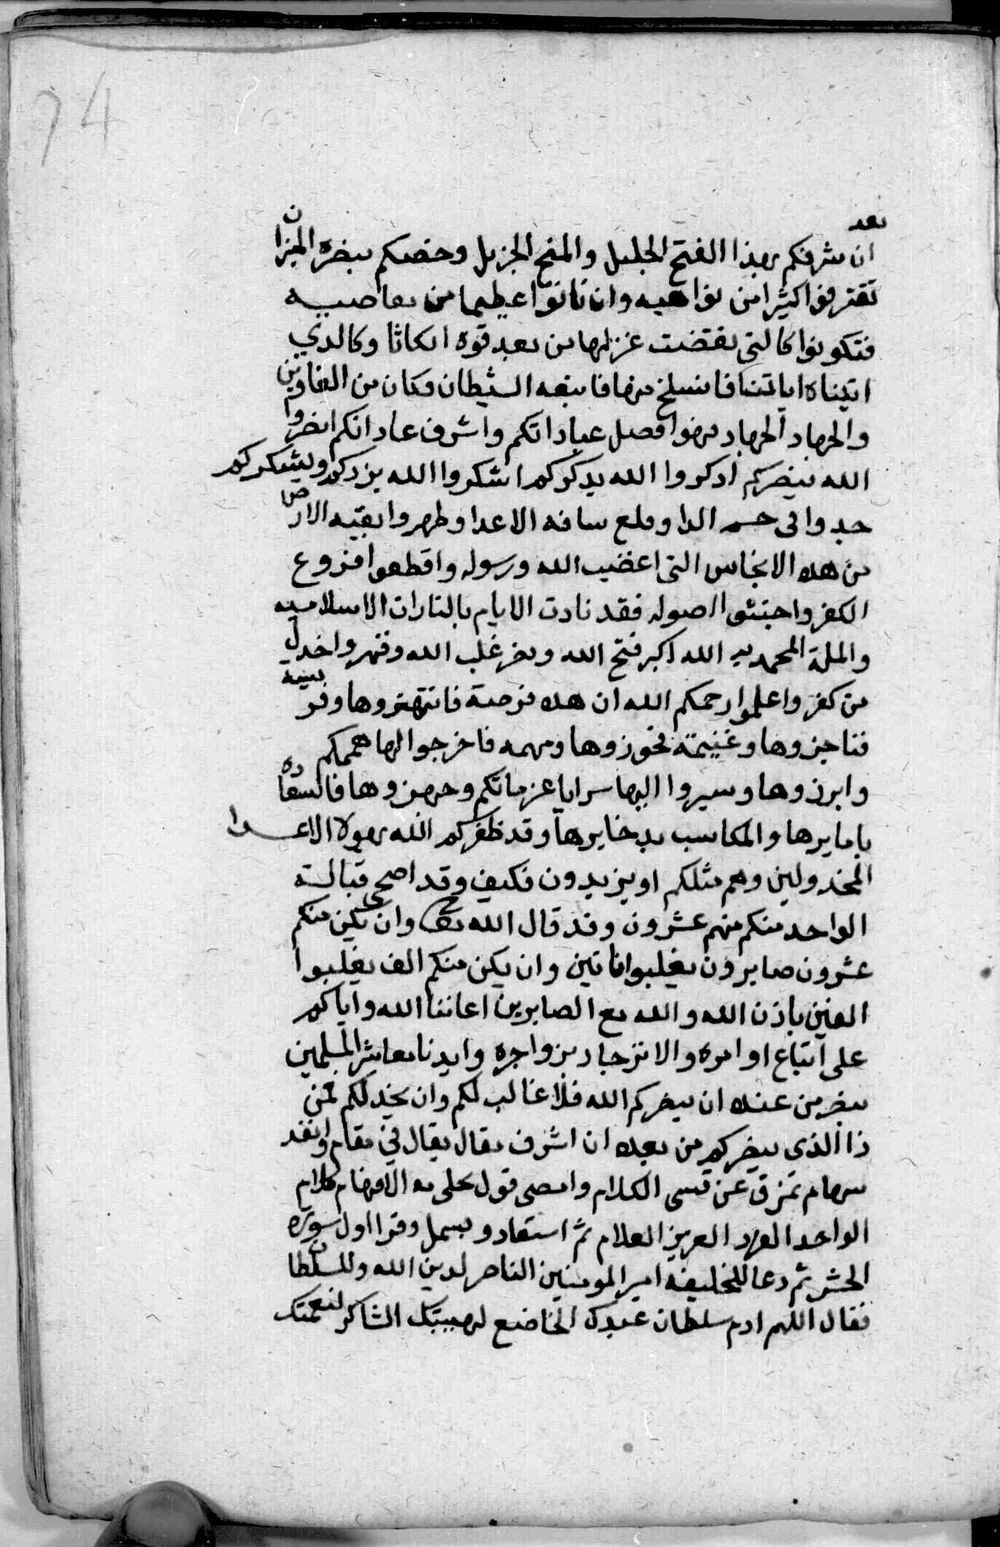 74
بعد
ان شرفكم بهذا الفتح الجليل والمنح الجزيل وخصكم بنصره المبين ان
تقترفوا كثيرا من نواهيه وان تاتوا عظيما من معاصيه
فتكونوا كالتي نقضت غزلها من بعد قوة انكاثا وكالذي
اتيناه اياتنا فانسلخ منها فاتبعه الشيطان فكان من الغاوين
والجهاد الجهاد فهو افضل عباداتكم واشرف عاداتكم انصروا
الله ينصركم اذكروا الله يذكركم اشكروا الله يزدكم ويشكركم
جدوا في حسم الدا وقلع شافه الاعدا وطهروا بقيه الارض
من هذه الانجاس التي اغضبت الله ورسوله واقطعوا فروع
الكفر واجتثوا اصوله فقد نادت الايام بالثارات الاسلاميه
والملة المحمديه الله اكبر فتح الله ونصر غلب الله وقهر واذل
من كفر واعلموا رحمكم الله ان هذه فرصة فانتهزوها وفريسة
فناجزوها وغنيمة فحوزوها ومهمه فاخرجوا لها هممكم
وابرزوها وسيروا اليها سرايا عزماتكم وجهزوها فالسعادة
باخايرها والمكاسب بدخايرها وقد ظفركم الله بهولا الاعدا
المخذولين وهم مثلكم او يزيدون فكيف وقد اضحى قبالة
الواحد منكم منهم عشرون وقد قال الله تعالى وان يكن منكم
عشرون صابرون يغلبوا ماتين وان يكن منكم الف يغلبوا
الفين باذن الله والله مع الصابرين اعاننا الله واياكم
على اتباع اوامره والانزجار بزواجره وايدنا معاشر المسلمين
بنصر من عنده ان ينصركم الله فلا غالب لكم وان يخذلكم فمن
ذا الذي ينصركم من بعده ان اشرف مقال يقال في مقام وانفذ
سهام تمرق عن قسي الكلام وامضى قول تحلى به الافهام كلام
الواحد الفرد العزيز العلام ثم استعاذ وبسمل وقرا اول سورة
الحشر ثم دعا للخليفة امير المومنين الناصر لدين الله وللسلطان
فقال اللهم ادم سلطان عبدك الخاضع لهيبتك الشاكر لنعمتك